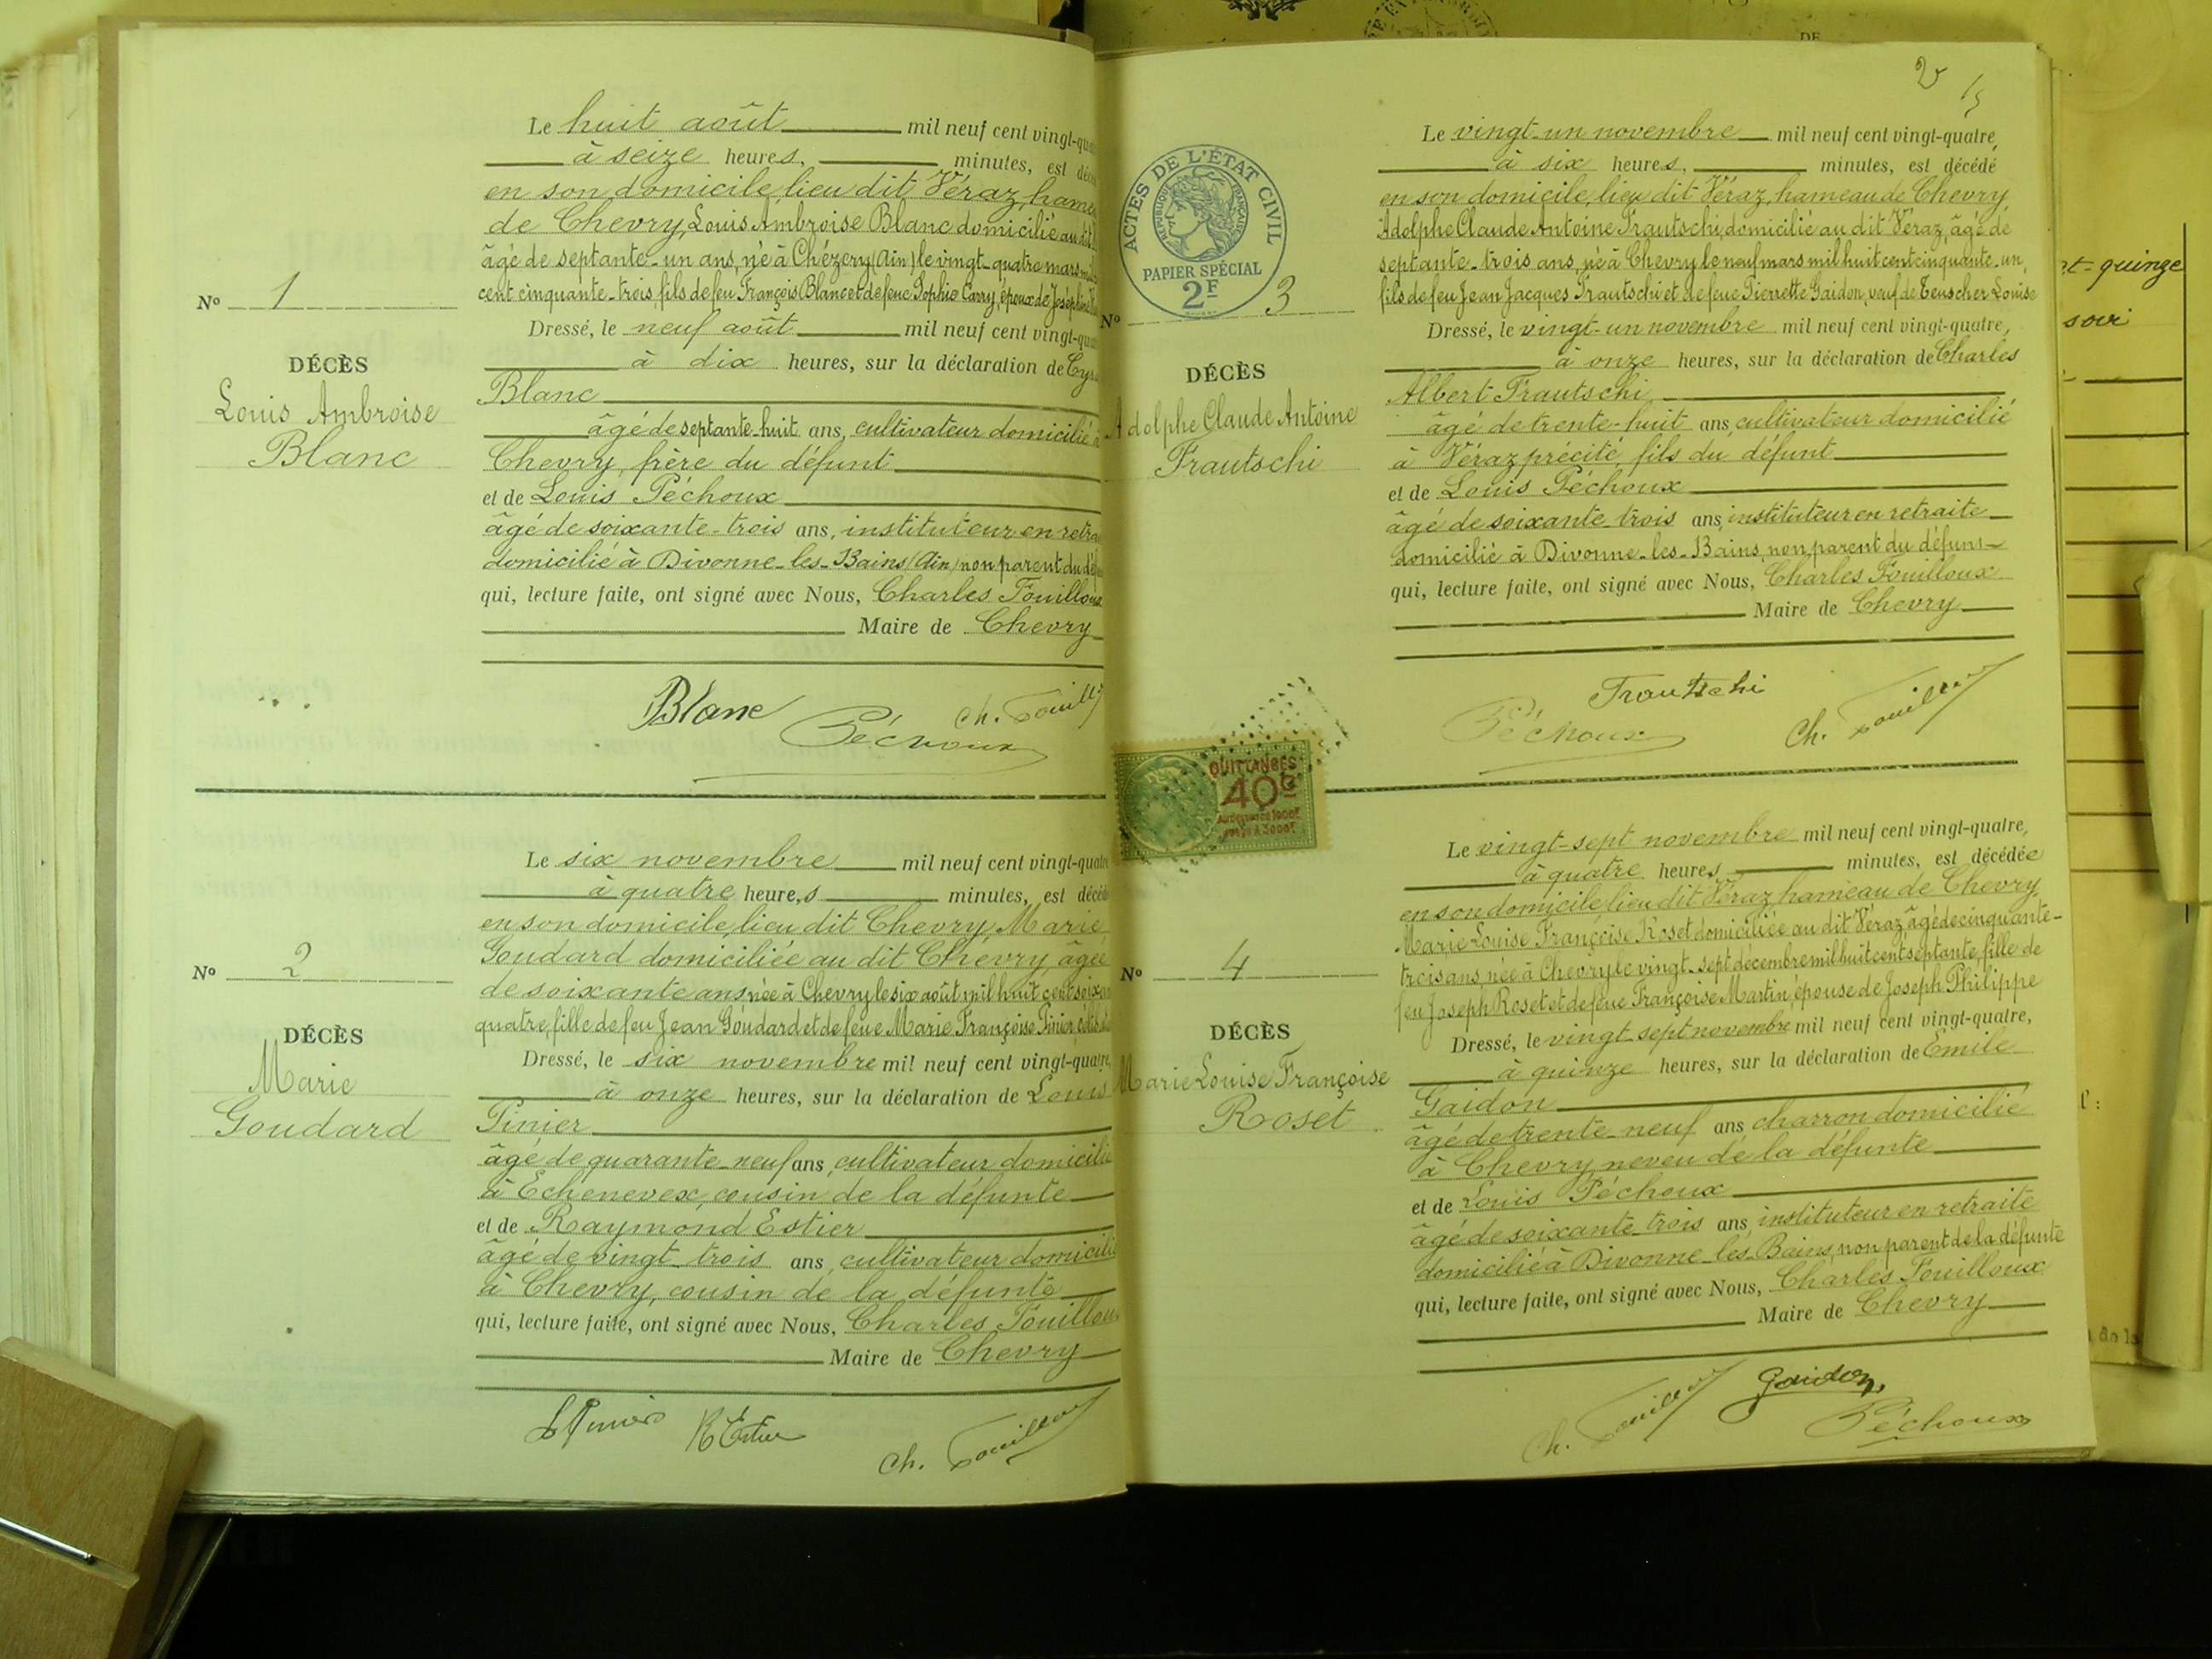 Le huit août mil neuf cent vingt-qua
à seize heures, minutes, est déc
en son domicile, lieu dit Véraz, hame
de Chevry, Louis Ambroise Blanc domicilié au dit
âgé de septante-un ans, né à Chézery (Ain) le vingt-quatre mars
cent cinquante-trois, fils de feu François Blanc et de feue Sophie Carry, époux de Joséphine
N° 1
Dressé, le neuf août mil neuf cent vingt-qua
à dix heures, sur la déclaration de
DÉCÈS
Louis Ambroise
Blanc
Blanc
âgé de septante-huit ans, cultivateur domicilié à
Chevry, frère du défunt
et de Louis Péchoux
âgé de soixante-trois ans, instituteur en retra
domicilié à Divonne-les-Bains (Ain) non parent du
qui, lecture faite, ont signé avec Nous, Charles Fouilloux
Maire de Chevry
Blanc
Péchoux
Ch. Fouill
Le six novembre mil neuf cent vingt-quatre
à quatre heures minutes, est décéd
en son domicile, lieu dit Chevry, Marie
Goudard domiciliée au dit Chevry, âgée
de soixante ans, née à Chevry le six août mil huit cent soixan
quatre, fille de feu Jean Goudard et de feue Marie Françoise Pinier,
N° 2
Dressé, le six novembre mil neuf cent vingt-quatre,
à onze heures, sur la déclaration de Louis
DÉCÈS
Marie
Goudard
Pinier
âgé de quarante-neuf ans, cultivateur domicilié
à Echenevex, cousin de la défunte
et de Raymond Estier
âgé de vingt-trois ans, cultivateur domicilié
à Chevry, cousin de la défunte
qui, lecture faite, ont signé avec Nous, Charles Fouillou
Maire de Chevry
Ch. Fouilloux
2
ACTES DE L'ÉTAT CIVIL
RÉPUBLIQUE FRANÇAISE
PAPIER SPÉCIAL
2F
Le vingt-un novembre mil neuf cent vingt-quatre,
à six heures, minutes, est décédé
en son domicile, lieu dit Véraz, hameau de Chevry,
Adolphe Claude Antoine Frautschi, domicilié au dit Véraz, âgé de
septante-trois ans, né à Chevry le neuf mars mil huit cent cinquante-un,
fils de feu Jean Jacques Frautschi et de feue Pierrette Gaidon, veuf de Teuscher Louise
N° 3
Dressé, le vingt-un novembre mil neuf cent vingt-quatre,
à onze heures, sur la déclaration de Charles
DÉCÈS
Adolphe Claude Antoine
Frautschi
Albert Frautschi,
âgé de trente-huit ans, cultivateur domicilié
à Véraz précité, fils du défunt
et de Louis Péchoux
âgé de soixante-trois ans, instituteur en retraite
domicilié à Divonne-les-Bains, non parent du défunt
qui, lecture faite, ont signé avec Nous, Charles Fouilloux
Maire de Chevry
Frautschi
Péchoux
Ch. Fouilloux
QUITTANCES
40c
Le vingt-sept novembre mil neuf cent vingt-quatre,
à quatre heures minutes, est décédée
en son domicile lieu dit Véraz, hameau de Chevry,
Marie Louise Françoise Roset domiciliée au dit Véraz âgée de cinquante-
trois ans, née à Chevry le vingt-sept décembre mil huit cent septante, fille de
feu Joseph Roset et de feue Françoise Martin, épouse de Joseph Philippe
N° 4
Dressé, le vingt-sept novembre mil neuf cent vingt-quatre,
à quinze heures, sur la déclaration de Emile
DÉCÈS
Marie Louise Françoise
Roset
Gaidon
âgé de trente-neuf ans charron domicilié
à Chevry, neveu de la défunte
et de Louis Péchoux
âgé de soixante-trois ans, instituteur en retraite
domicilié à Divonne-les-Bains, non parent de la défunte
qui, lecture faite, ont signé avec Nous, Charles Fouilloux
Maire de Chevry
Ch. Fouilloux
Gaidon
Péchoux
DE
t-quinze
soir